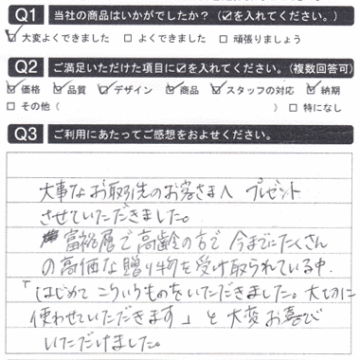 Q1 当社の商品はいかがでしたか？（☑を入れてください。）
☑ 大変よくできました □ よくできました □ 頑張りましょう
Q2 ご満足いただけた項目に☑を入れてください。（複数回答可）
☑ 価格 ☑ 品質 ☑ デザイン ☑ 商品 ☑ スタッフの対応 ☑ 納期
□ その他（ ） □ 特になし
Q3 ご利用にあたってご感想をおよせください。
大事なお取引先のお客さまへ プレゼント
させていただきました。
富裕層で高齢の方で 今までにたくさん
の高価な贈り物を受け取られている中、
「はじめて こういうものをいただきました。大切に
使わせていただきます」と 大変お喜び
いただけました。